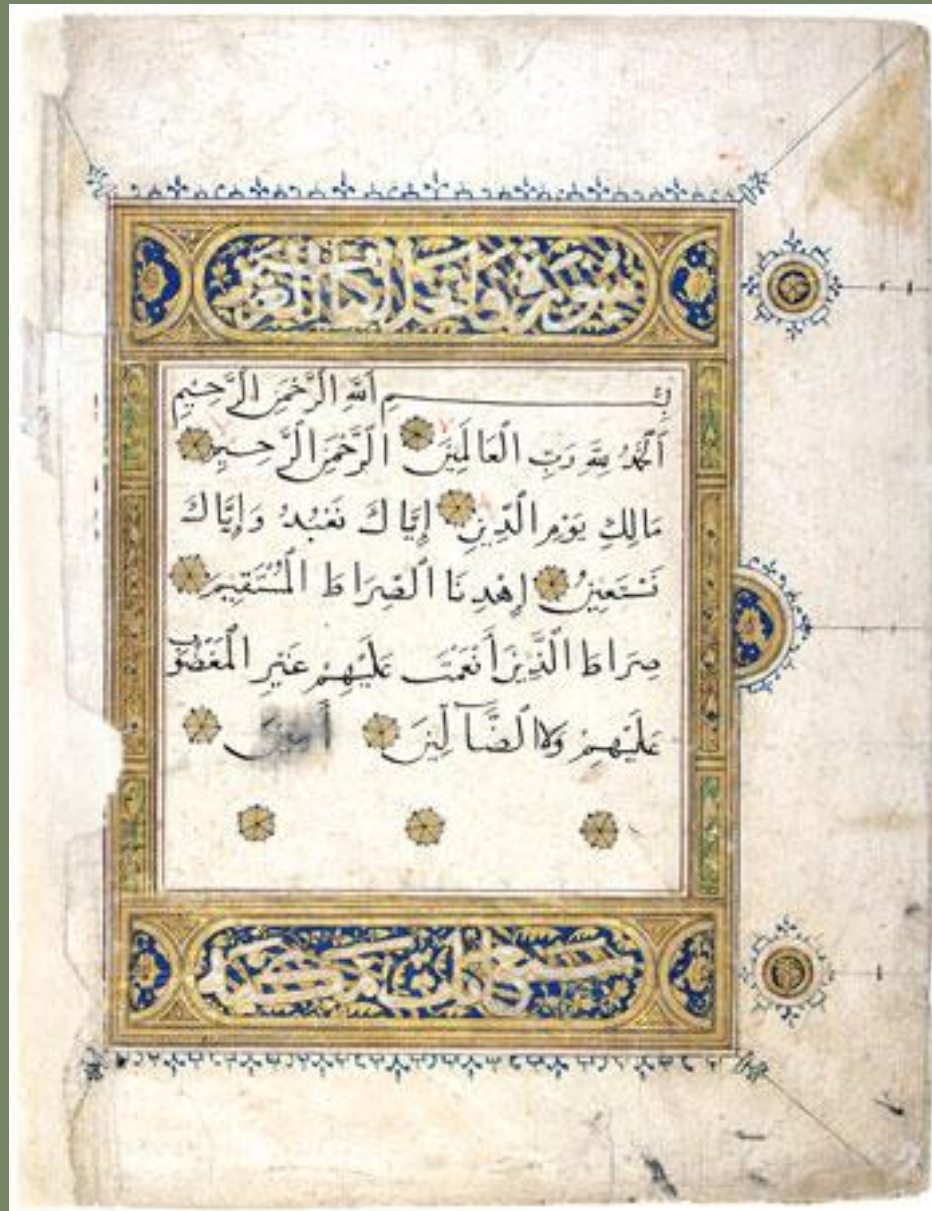 سورة فاتحة الكتاب
بِسْمِ اللَّهِ الرَّحْمَنِ الرَّحِيمِ
اَلْحَمْدُ لِلَّهِ رَبِّ الْعَالَمِينَ الرَّحْمَنِ الرَّحِيمِ
مَالِكِ يَوْمِ الدِّينِ إِيَّاكَ نَعْبُدُ وَإِيَّاكَ
نَسْتَعِينُ اِهْدِنَا الصِّرَاطَ الْمُسْتَقِيمَ
صِرَاطَ الَّذِينَ أَنْعَمْتَ عَلَيْهِمْ غَيْرِ الْمَغْضُوبِ
عَلَيْهِمْ وَلَا الضَّآلِّينَ أَمِينَ
سبع آيات مكية